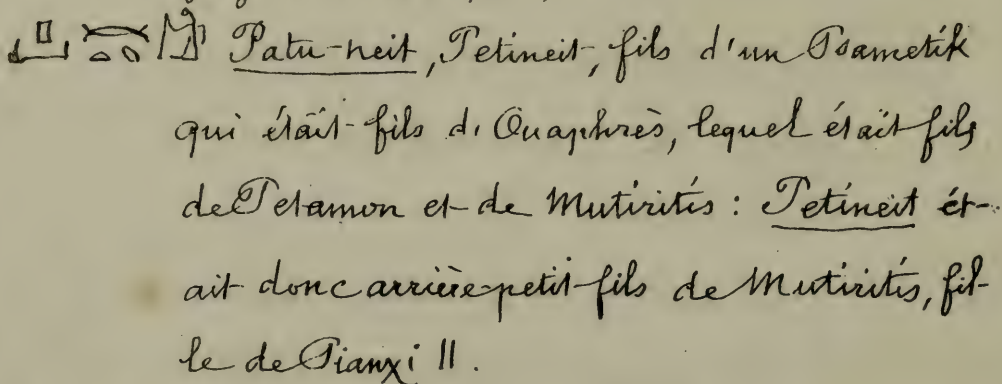 Patu-neit, Petineit, fils d'un Psametik
qui était fils d. Ouaphrès, lequel était fils
de Petamon et de Mutiritis : Petineit ét-
ait donc arrière-petit-fils de Mutiritis, fil-
le de Pianχi II.